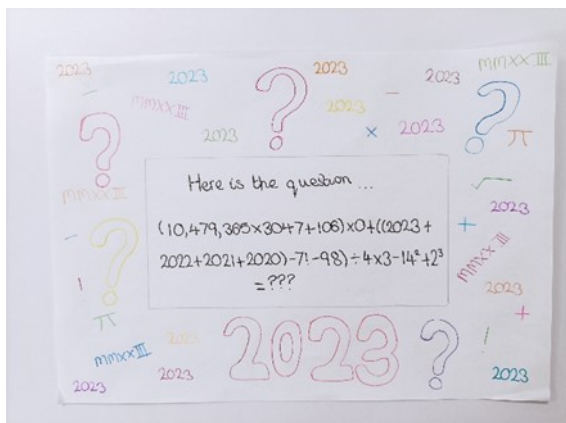 2023
2023
2023
2023
MMXXIII
MMXXIII
2023
2023
2023
× 2023
π
Here is the question ...
MMXXIII
2023
(10,479,365×3047+106)×0+((2023+
2022+2021+2020)-7!-98)÷4×3-14²+2³
=???
MMXXIII
2023
π
2023
MMXXIII
2023
2023
2023
2023